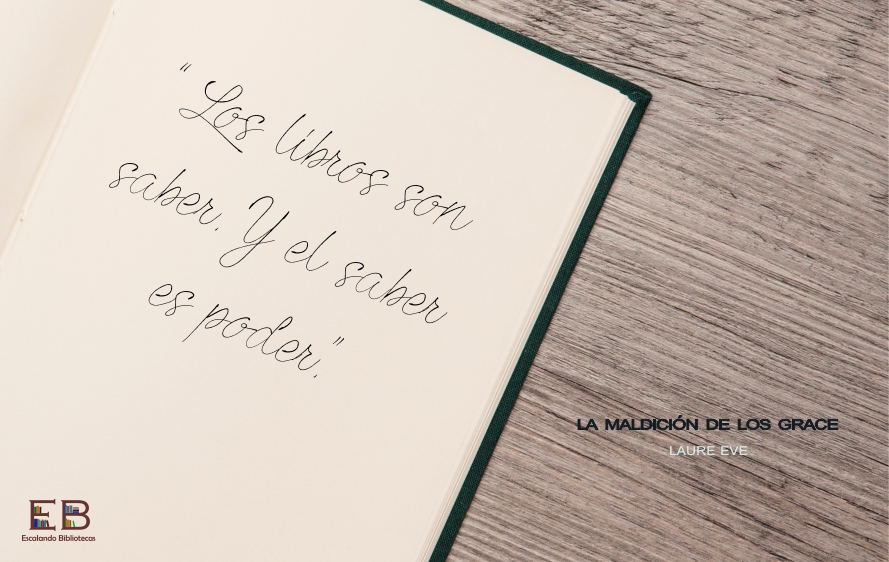 "Los libros son
saber. Y el saber
es poder."
LA MALDICIÓN DE LOS GRACE
LAURE EVE
EB
Escalando Bibliotecas